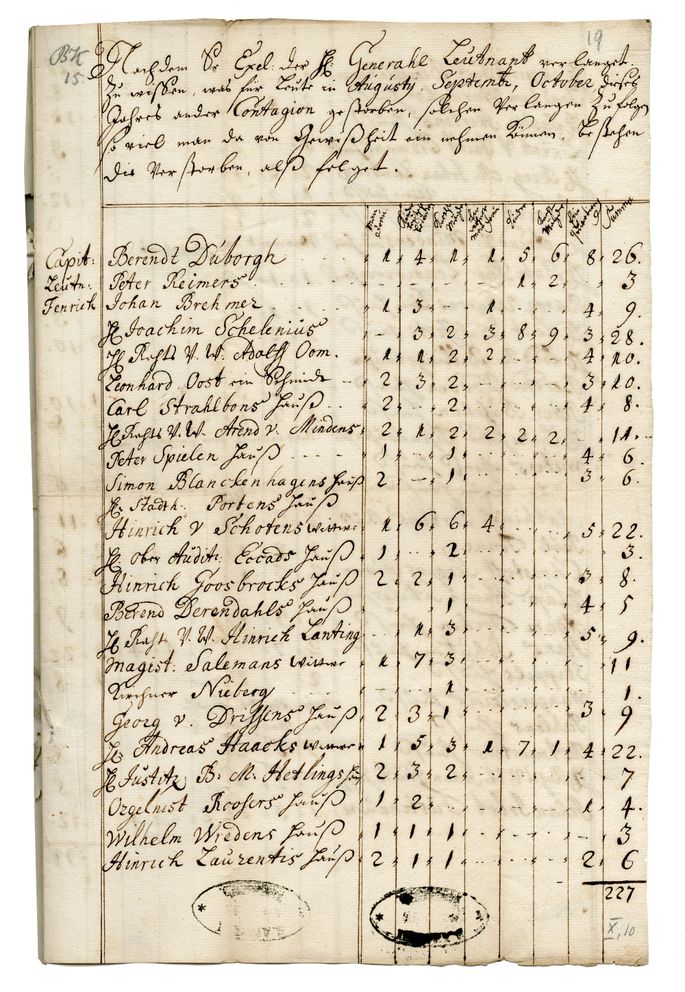 BK
15.
19
Nachdem Sr Exel: der H: Generahl Leutnant verlanget
zu wissen, was für Leute in Augustj, Septembr, October dieses
Jahres ander Contagion gestorben, solchen Verlangen zu folgen
so viel man da von Gewißheit ein nehmen können, bestehen
die Verstorben, alß folget.
Summa
Capit: Berendt Duborgh 1 4 1 1 5 6 8 26.
Leutn: Peter Reimers 1 2 3
Fenrich Johan Brehmer 1 3 1 4 9.
H Joachim Schelenius 3 2 3 8 9 3 28.
H Rahts V. W. Adolff Oom. 1 1 2 2 4 10.
Leonhard Oost ein Schmidt 2 3 2 3 10.
Carl Strahlbons Hauß 2 2 4 8.
H Rahts V. W. Arend v. Mindens 2 1 2 2 2 2 11.
Peter Spielen Hauß 1 1 4 6.
Simon Blanckenhagens Hauß 2 1 3 6.
H: Stadth: Portens Hauß
Hinrich v Schotens Wittwe 1 6 6 4 5 22.
H: Ober Auditr: Eccads Hauß 1 2 3.
Hinrich Goosbrocks Hauß 2 2 1 3 8.
Berend Derendahls Hauß 1 4 5
H Raht V. W. Hinrich Lanting 1 3 5 9.
Magist: Salemans Wittwe 1 7 3 11
Kirchner Nieberg 1 1.
Georg v. Drissens Hauß 2 3 1 3 9
H Andreas Haacks Wittwe 1 5 3 1 7 1 4 22.
H Justitz B: M: Hetlings 2 3 2 7
Orgelnist Roosers Hauß 1 2 1 4.
Wilhelm Wredens Hauß 1 1 1 3
Hinrich Laurentis Hauß 2 1 1 2 6
227
X, 10